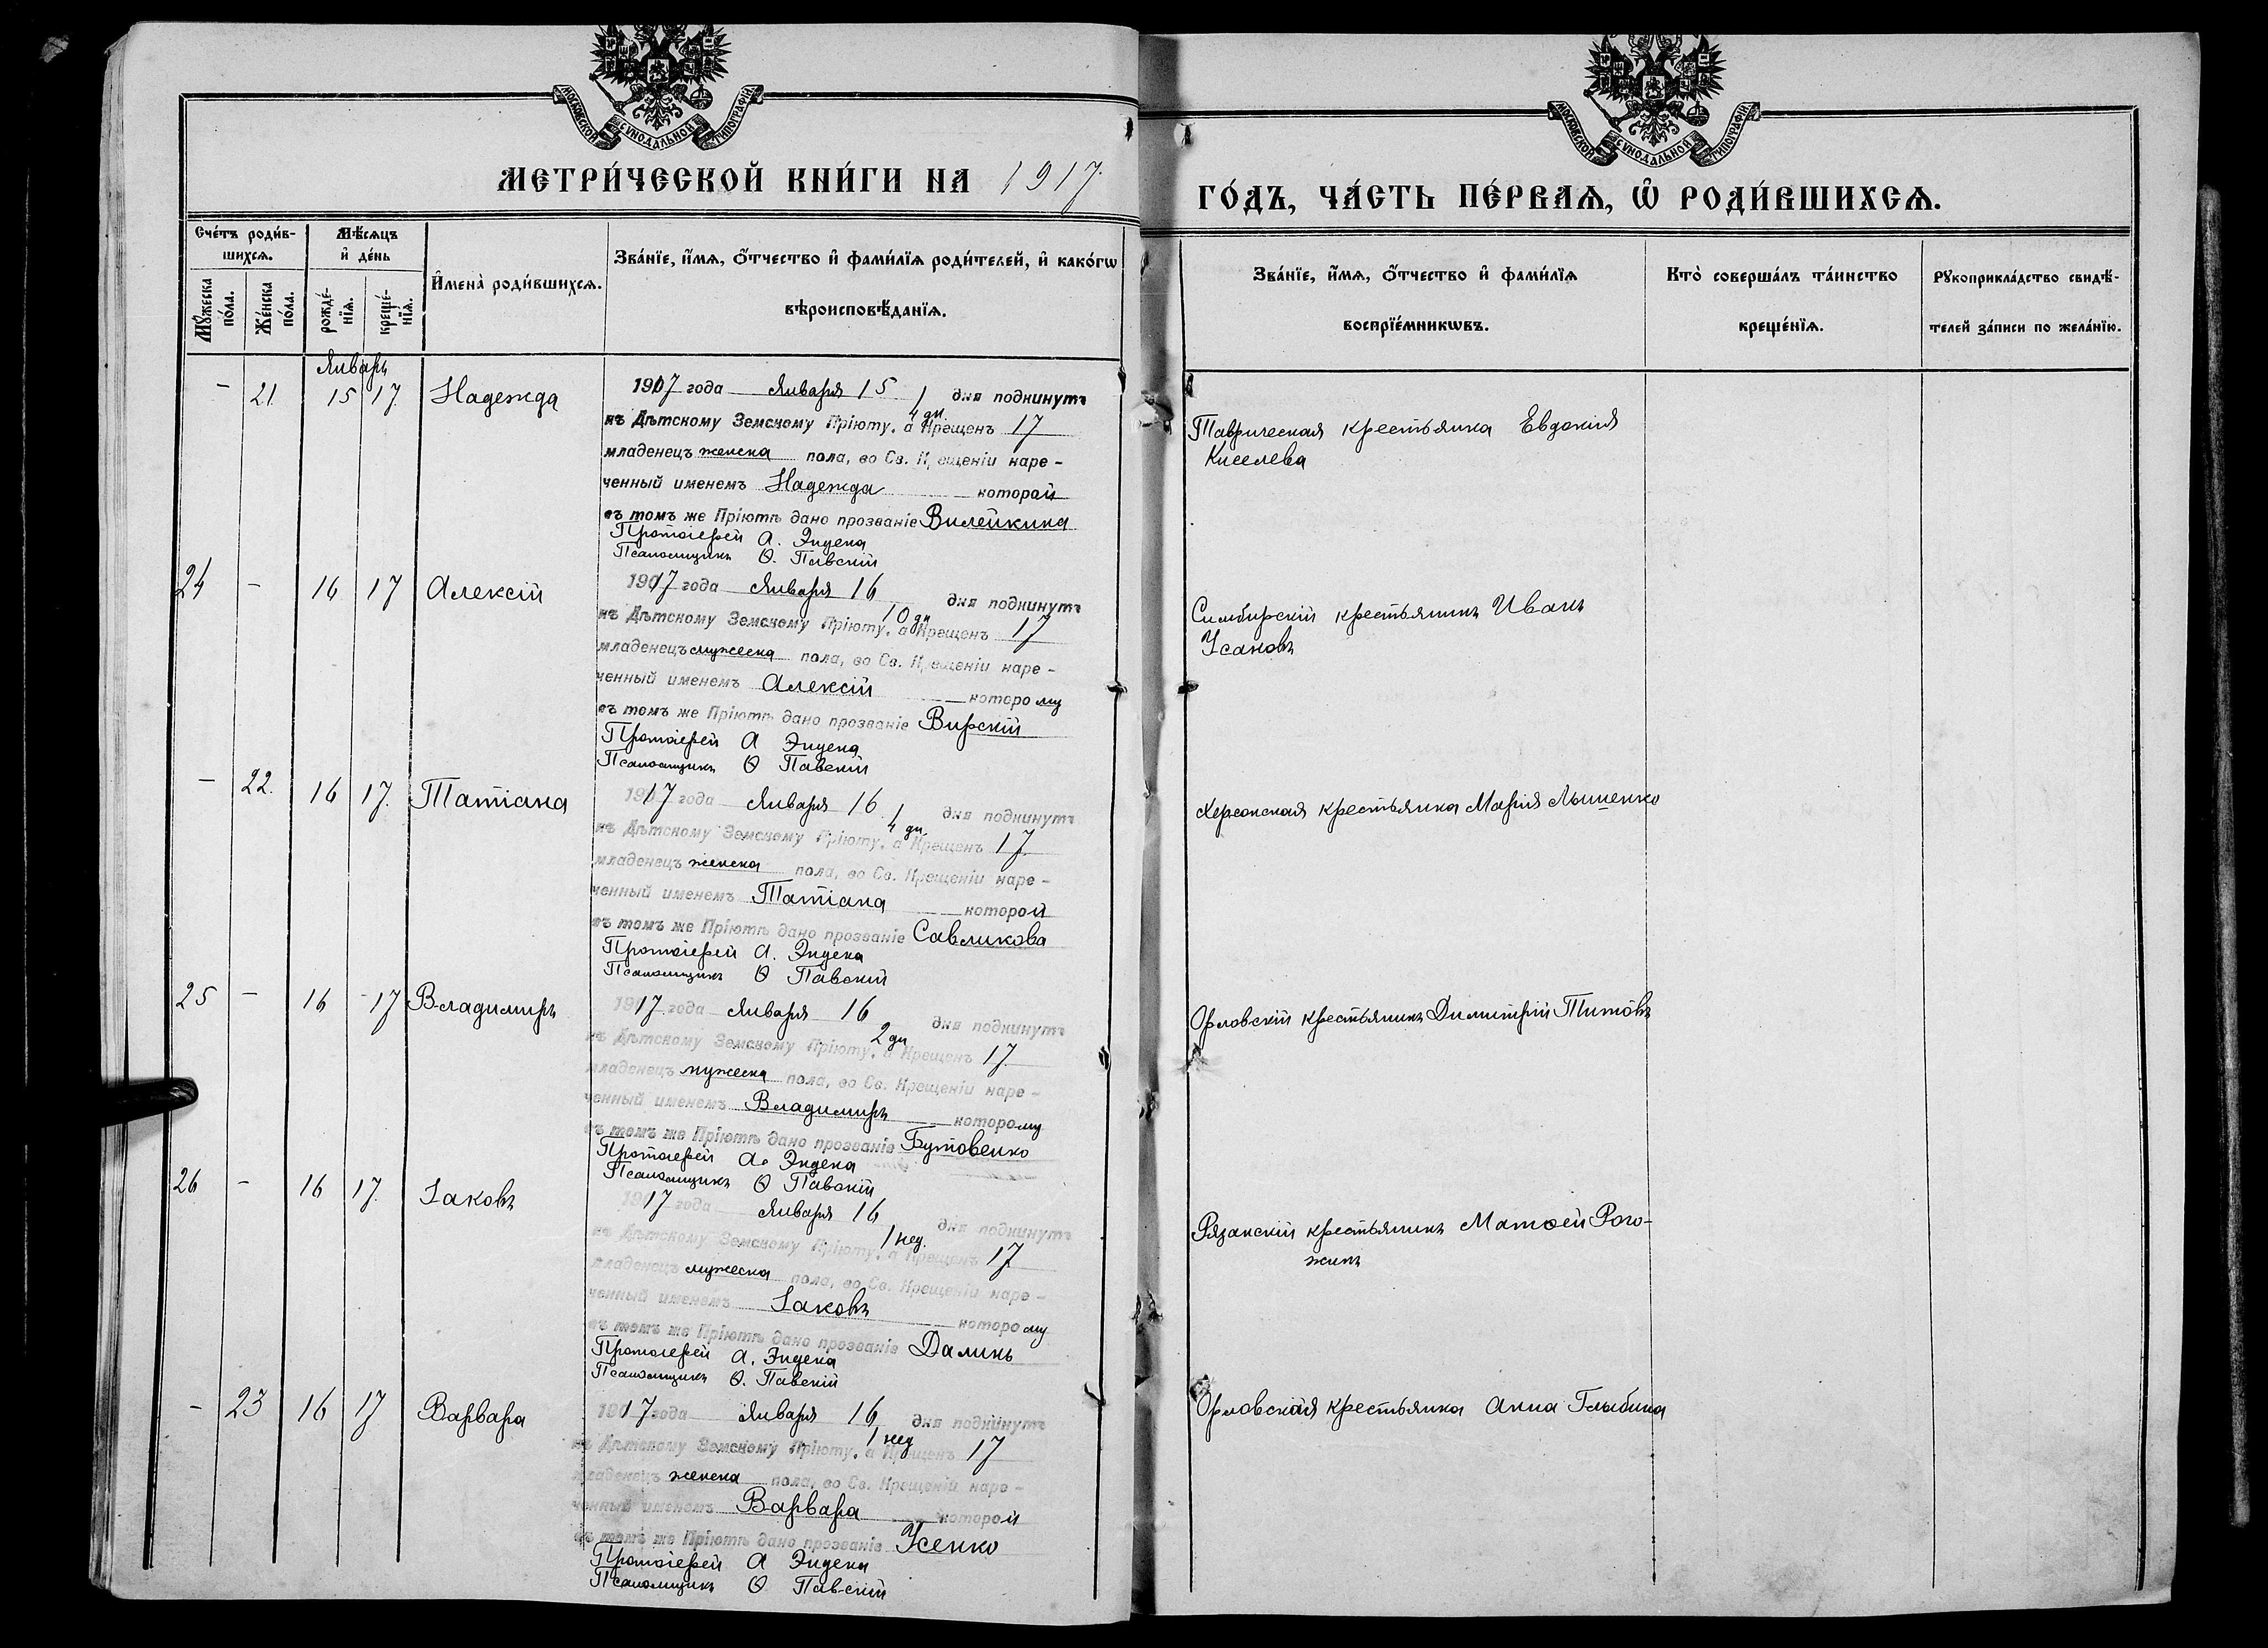 МОСКОВСКОЙ СУНОДАЛЬНОЙ ТИПОГРАФІИ
МОСКОВСКОЙ СУНОДАЛЬНОЙ ТИПОГРАФІИ
МЕТРИ́ЧЕСКОЙ КНИ́ГИ НА 1917.
ГО́ДЪ, ЧА́СТЬ ПЕ́РВАѦ, Ѡ҆ РОДИ́ВШИХСѦ.
Сче́тъ роди́в-
шихсѧ.
Мꙋ́жеска
по́ла.
Же́нска
по́ла.
Мѣ́сѧцъ
и҆ де́нь
рожде́-
нїѧ.
креще́-
нїѧ.
И҆мена̀ роди́вшихсѧ.
Зва́нїе, и҆́мѧ, ѻ҆́тчество и҆ фами́лїѧ роди́телей, и҆ како́гѡ
вѣроисповѣ́данїѧ.
Зва́нїе, и҆́мѧ, ѻ҆́тчество и҆ фами́лїѧ
воспрїе́мникѡвъ.
Кто̀ соверша́лъ та́инство
креще́нїѧ.
Рꙋкоприкла́дство свидѣ́-
телей за́писи по жела́нїю.
Январь
- 21 15 17. Надежда
1917 года Января 15 дня подкинутъ
4 дн.
къ Дѣтскому Земскому Пріюту, а Крещенъ 17
младенецъ женска пола, во Св. Крещеніи наре-
ченный именемъ Надежда которой
въ томъ же Пріютѣ дано прозваніе Вилейкина
Протоіерей А. Эндека
Псаломщикъ Ѳ. Павскій
Таврическая крестьянка Евдокія
Киселева
24 - 16 17 Алексій
1917 года Января 16 дня подкинутъ
10 дн
къ Дѣтскому Земскому Пріюту, а Крещенъ 17
младенецъ мужеска пола, во Св. Крещеніи наре-
ченный именемъ Алексій которому
въ томъ же Пріютѣ дано прозваніе Вирскій
Протоіерей А Эндека
Псаломщикъ Ѳ Павскій
Симбирскій крестьянинъ Иванъ
Усановъ
- 22. 16 17. Татіана
1917 года Января 16 дня подкинутъ
4 дн.
къ Дѣтскому Земскому Пріюту, а Крещенъ 17.
младенецъ женска пола, во Св. Крещеніи наре-
ченный именемъ Татіана которой
въ томъ же Пріютѣ дано прозваніе Савликова
Протоіерей А. Эндека
Псаломщикъ Ѳ Павскій
Херсонская крестьянка Марія Лышенко
25 - 16 17 Владимиръ
1917 года Января 16 дня подкинутъ
2 дн
къ Дѣтскому Земскому Пріюту, а Крещенъ 17.
младенецъ мужеска пола, во Св. Крещеніи наре-
ченный именемъ Владимиръ которому
въ томъ же Пріютѣ дано прозваніе Бутовенко
Протоіерей А. Эндека
Псаломщикъ Ѳ Павскій
Орловскій крестьянинъ Димитрій Титовъ
26 - 16 17. Іаковъ
1917 года Января 16 дня подкинутъ
1 нед.
къ Дѣтскому Земскому Пріюту, а Крещенъ 17.
младенецъ мужеска пола, во Св. Крещеніи наре-
ченный именемъ Іаковъ которому
въ томъ же Пріютѣ дано прозваніе Далинъ
Протоіерей А. Эндека
Псаломщикъ Ѳ. Павскій
Рязанскій крестьянинъ Матѳей Рого-
жинъ
- 23 16 17 Варвара
1917 года Января 16 дня подкинутъ
1 нед
къ Дѣтскому Земскому Пріюту, а Крещенъ 17
младенецъ женска пола, во Св. Крещеніи наре-
ченный именемъ Варвара которой
въ томъ же Пріютѣ дано прозваніе Усенко
Протоіерей А Эндека
Псаломщикъ Ѳ Павскій
Орловская крестьянка Анна Глыбина